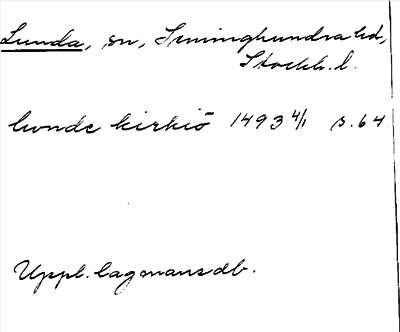 Lunda, sn, Seminghundra hd,
Stockh. l.
lwnde kirkiö 1493 4/1 s. 64
Uppl. lagmansdb.